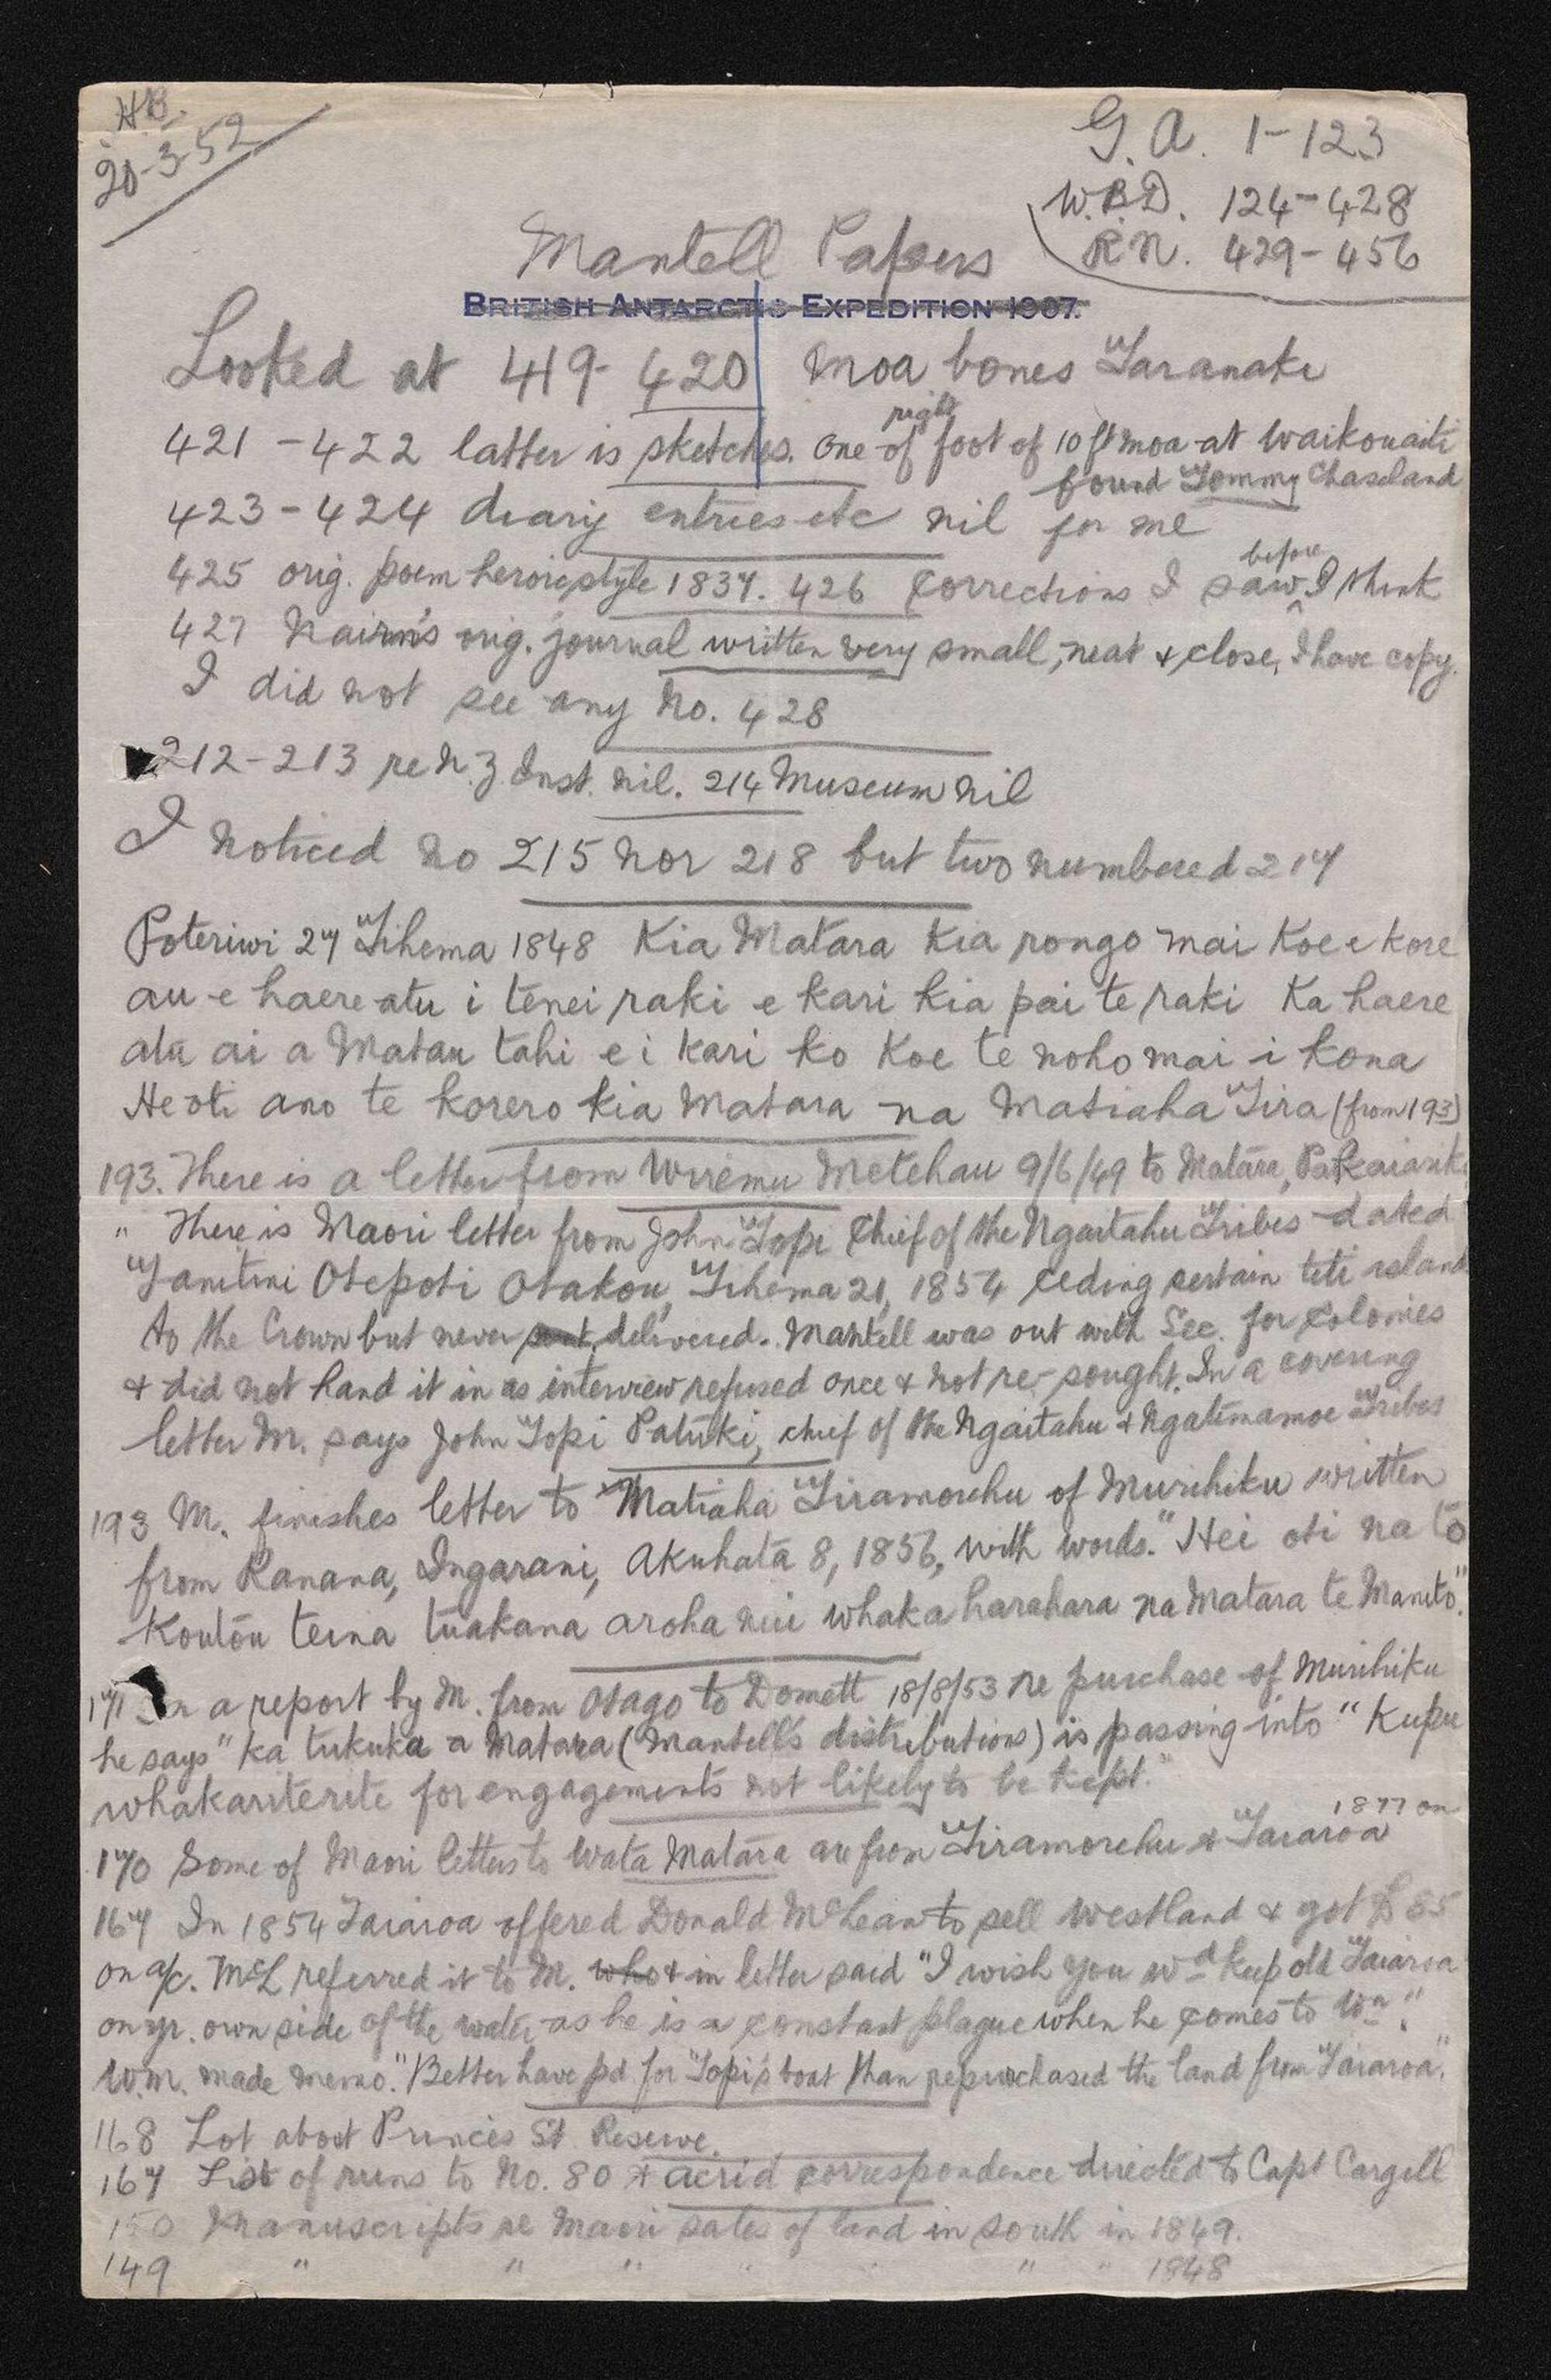 HB.
20-3-52
G.A. 1-123
W.B.D. 124-428
R.N. 429-456
Mantell Papers
BRITISH ANTARCTIC EXPEDITION 1907.
Looked at 419-420 Moa bones Taranaki
421-422 latter is sketches. One of right foot of 10 ft moa at Waikouaiti
found Tommy Chaseland
423-424 diary entries etc nil for me
425 orig. poem heroic style 1837. 426 Corrections I saw before I think
427 Nairn's orig. journal written very small, neat & close, I have copy.
I did not see any No. 428
212-213 re N.Z Inst. nil. 214 Museum nil
I noticed no 215 nor 218 but two numbered 217
Poteriwi 27 Tihema 1848 Kia Matara Kia rongo mai Koe e kore
au e haere atu i tenei raki e kari kia pai te raki Ka haere
atu ai a Matau tahi e i kari ko Koe te noho mai i kona
Heoti ano te korero kia Matara na Matiaha Tira (from 193)
193. There is a letter from Wiremu Metehau 9/6/49 to Matara,
" There is Maori letter from John Topi Chief of the Ngaitahu Tribes dated
Tanitini Otepoti Otakou, Tihema 21, 1854 ceding certain titi island
to the Crown but never sent, delivered. Mantell was out with Sec. for Colonies
& did not hand it in as interview refused once & not re-sought. In a covering
letter M. says John Topi Patuki, chief of the Ngaitahu & Ngatimamoe Tribes
193 M. finishes letter to Matiaha Tiramorehu of Murihiku written
from Ranana, Ingarani, Akuhata 8, 1856, with words. "Hei oti na to
Koutou teina tuakana aroha nui whakaharahara na Matara te Maneto."
171 In a report by M. from Otago to Domett 18/8/53 re purchase of Murihiku
he says "ka tukuka a Matara (Mantell's distributions) is passing into "Kupu
whakariterite for engagements not likely to be kept."
170 Some of Maori letters to Wata Matara are from Tiramorehu & Taiaroa 1877 on
167 In 1854 Taiaroa offered Donald McLean to sell Westland & got £85
on a/c. McL referred it to M. who & in letter said "I wish you wd keep old Taiaroa
on yr. own side of the water as he is a constant plague when he comes to Wn."
W.M. made memo. "Better have pd for Topi's boat than repurchased the land from Taiaroa".
168 Lot about Princes St Reserve.
167 List of runs to No. 80 & acrid correspondence directed to Capt Cargill
150 Manuscripts re Maori sales of land in South in 1849.
149 " " " " " 1848